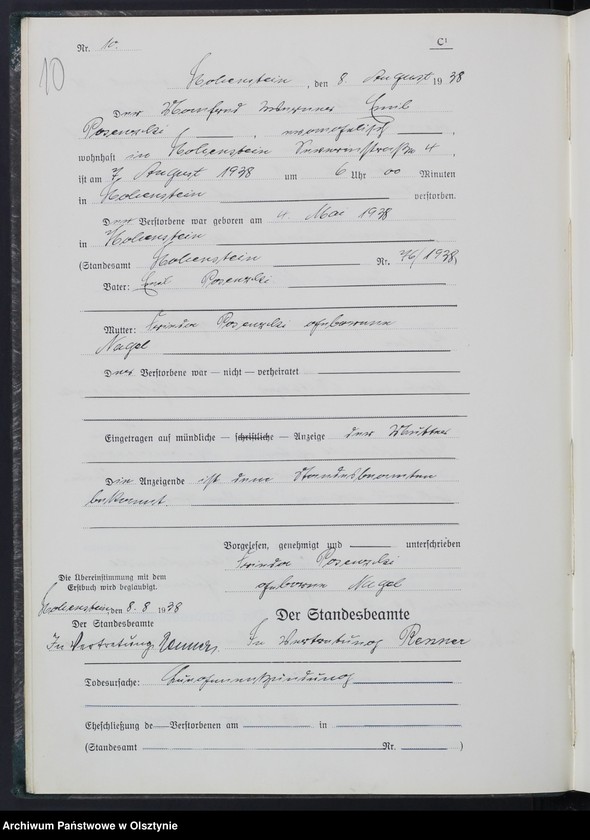 Nr. 10.
C¹
10
Hohenstein, den 8. August 1938
Der Manfred Werner Emil
Posenzki, evangelisch,
wohnhaft in Hohenstein 4,
ist am 7. August 1938 um 6 Uhr 00 Minuten
in Hohenstein verstorben.
Der Verstorbene war geboren am 4. Mai 1938
in Hohenstein
(Standesamt Hohenstein Nr. 76/1938)
Vater: Emil Posenzki
Mutter: Posenzki geborene
Nagel
Der Verstorbene war — nicht — verheiratet
Eingetragen auf mündliche — schriftliche — Anzeige der Mutter
Die Anzeigende ist dem Standesbeamten
bekannt.
Vorgelesen, genehmigt und unterschrieben
Posenzki
geborene Nagel
Die Übereinstimmung mit dem
Erstbuch wird beglaubigt.
Hohenstein, den 8. 8. 1938
Der Standesbeamte
In Vertretung: Renner.
Der Standesbeamte
In Vertretung Renner
Todesursache: Lungenentzündung
Eheschließung de Verstorbenen am in
(Standesamt Nr. )
Archiwum Państwowe w Olsztynie